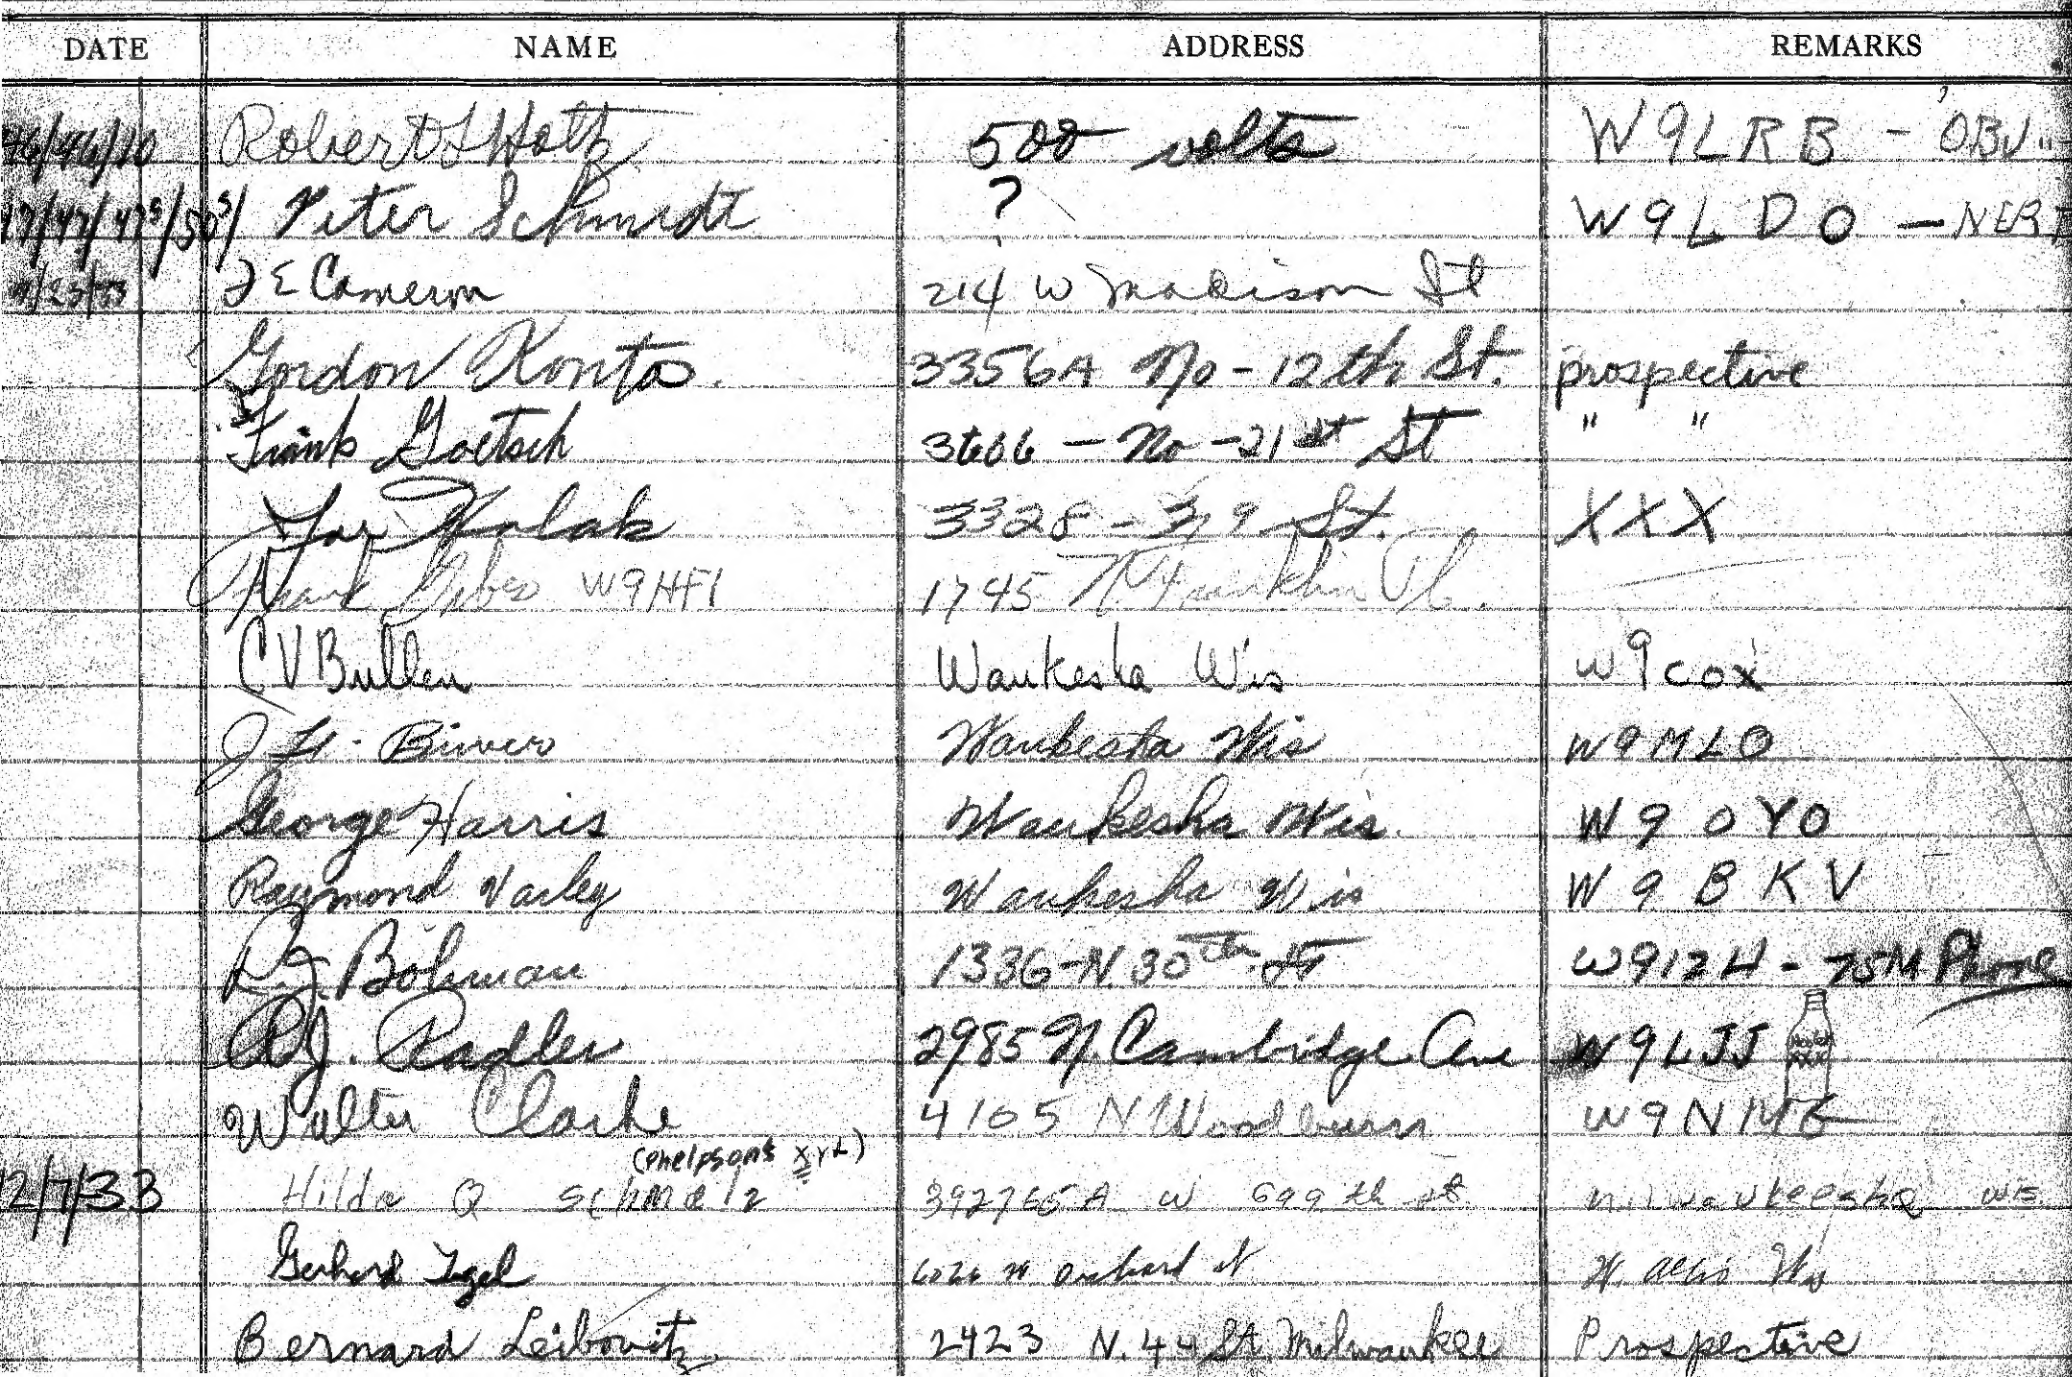 DATE NAME ADDRESS REMARKS
46/46/10 Robert L Holtz 500 volts W9LRB - OBJ"
47/47/47s/50s/ Peter Schmidt ? W9LDO - NERTZ
J E Cameron 214 W Madison St
Gordon Kontos 3356A No - 12th St. prospective
Frank Goetsch 3606 - No - 21st St " "
3328 - N 9 St. XXX
Frank W9HFI 1745 N Franklin Pl.
C V Bullen Waukesha Wis W9COX
J H. Waukesha Wis W9MLO
George Harris Waukesha Wis. W9OYO
Raymond Varley Waukesha Wis W9BKV
R.J. Bohman 1336-N. 30th St W9IZH - 75M Phone
A.J. Radler 2985 N. Cambridge Ave W9LJJ
XXX
Walter Clarke 4105 N Woodburn W9NME
(Phelpsons xyl)
12/7/33 Hilda Q Schmalz 392765A W 699th st Milwaukeesha Wis
Gerhard Tegel Orchard St W. Allis Wis
Bernard Leibovitz 2423 N. 44 St. Milwaukee Prospective